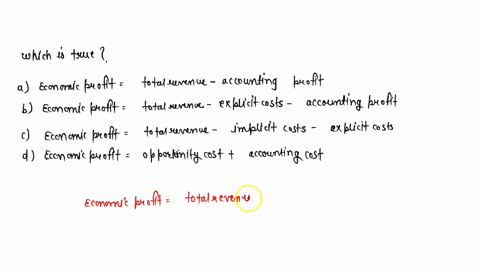 which is true?
a) Economic profit = total revenue - accounting profit
b) Economic profit = total revenue - explicit costs - accounting profit
c) Economic profit = total revenue - implicit costs - explicit costs
d) Economic profit = opportunity cost + accounting cost
Economic profit = total revenue